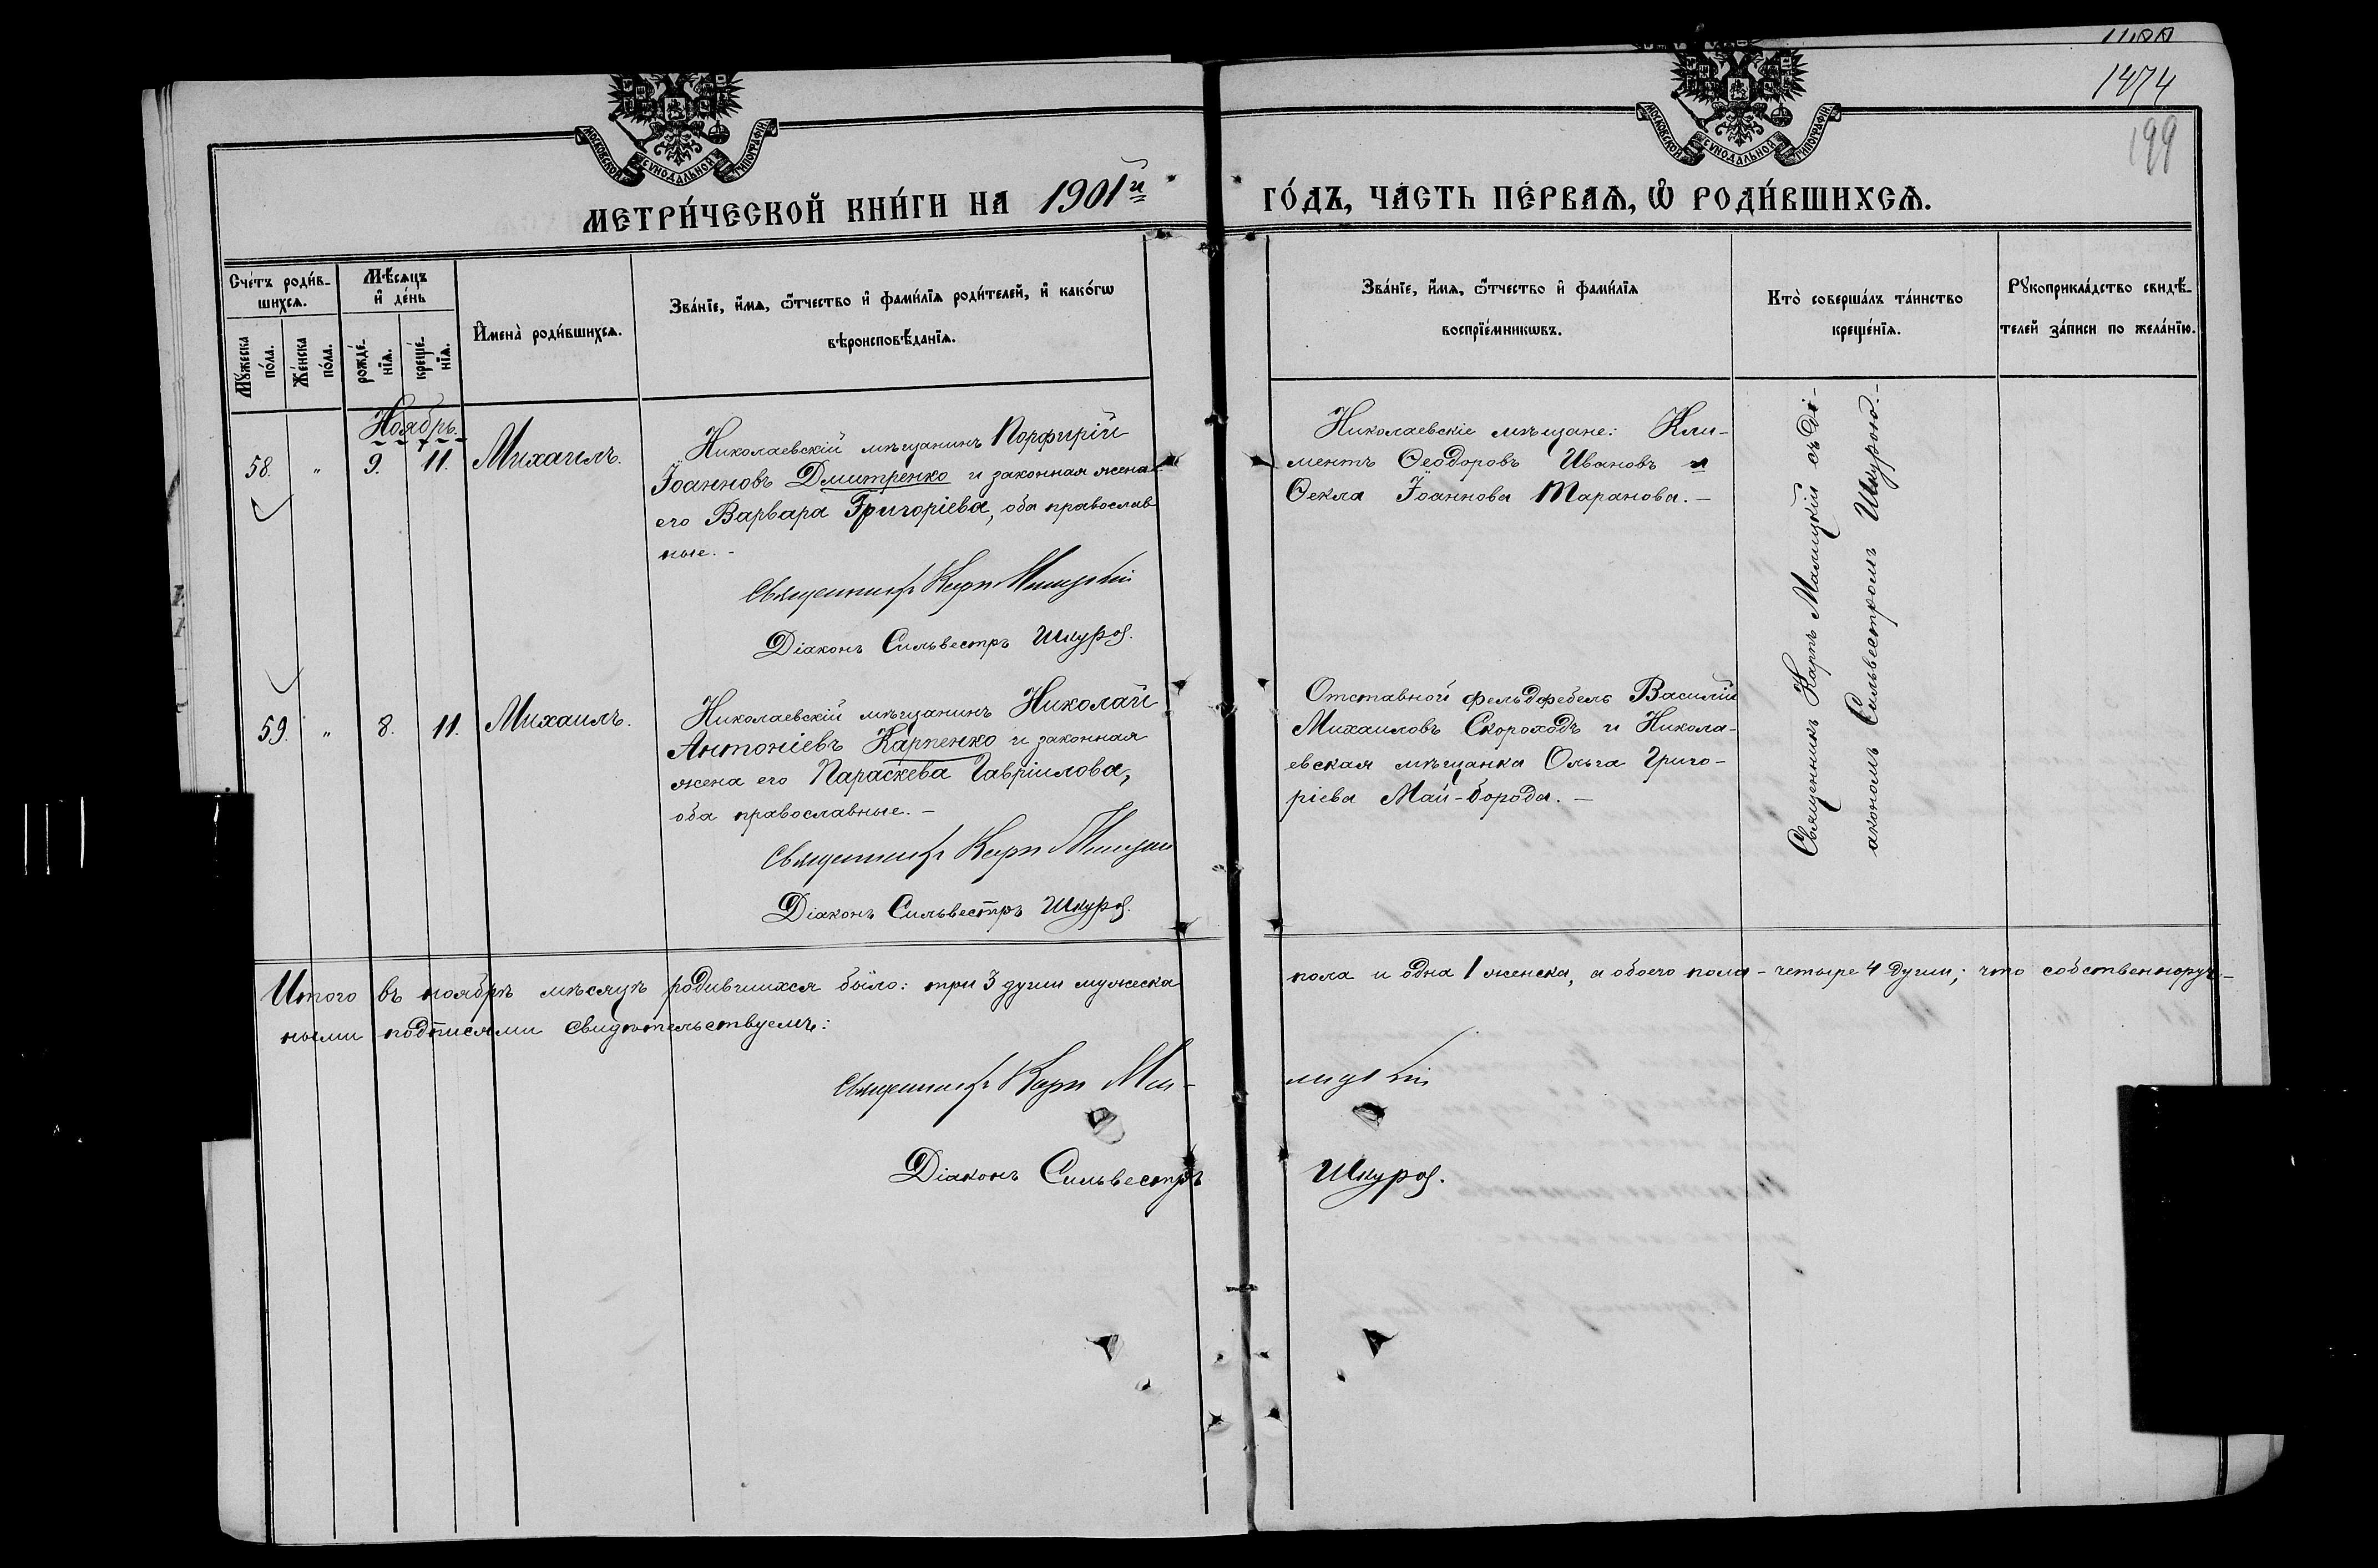 1474
199
МОСКОВСКОЙ СѴНОДАЛЬНОЙ ТИПОГРАФІИ.
МОСКОВСКОЙ СѴНОДАЛЬНОЙ ТИПОГРАФІИ.
МЕТРИ́ЧЕСКОЙ КНИ́ГИ НА 1901й
ГО́ДЪ, ЧА́СТЬ ПЕ́РВАѦ, Ѡ҆ РОДИ́ВШИХСѦ.
Сче́тъ роди́в-
шихсѧ.
Мꙋ́жеска
по́ла.
Же́нска
по́ла.
Мѣ́сѧцъ
и҆ де́нь
рожде́-
нїѧ.
креще́-
нїѧ.
И҆мена̀ роди́вшихсѧ.
Зва́нїе, и҆́мѧ, ѻ҆́тчество и҆ фами́лїѧ роди́телей, и҆ како́гѡ
вѣроисповѣ́данїѧ.
Зва́нїе, и҆́мѧ, ѻ҆́тчество и҆ фами́лїѧ
воспрїе́мникѡвъ.
Кто̀ соверша́лъ та́инство
креще́нїѧ.
Рꙋкоприкла́дство свидѣ́-
телей за́писи по жела́нїю.
Ноябрь.
58. " 9. 11. Михаилъ.
Николаевскій мѣщанинъ Порфирій
Іоанновъ Дмитренко и законная жена
его Варвара Григоріева, оба православ
ные. -
Священникъ Карп Малицкій
Діаконъ Сильвестръ Шкуро.
Николаевскіе мѣщане: Кли-
ментъ Ѳеодоровъ Ивановъ и
Ѳекла Іоаннова Таранова. -
Священникъ Карпъ Малицкій съ ді-
акономъ Сильвестромъ Шкурою. -
59. " 8. 11. Михаилъ.
Николаевскій мѣщанинъ Николай
Антоніевъ Карпенко и законная
жена его Параскева Гавріилова,
оба православные. -
Священникъ Карп Малицкій
Діаконъ Сильвестръ Шкуро.
Отставной фельдфебель Василій
Михаиловъ Скороходъ и Никола-
евская мѣщанка Ольга Григо-
ріева Май-борода. -
Итого въ ноябрѣ мѣсяцѣ родившихся было: три 3 души мужеска пола и одна 1 женска, а обоего пола - четыре 4 души; что собственноруч-
ными подписями свидѣтельствуемъ:
Священникъ Карп Ма- лицкій
Діаконъ Сильвестръ Шкуро.